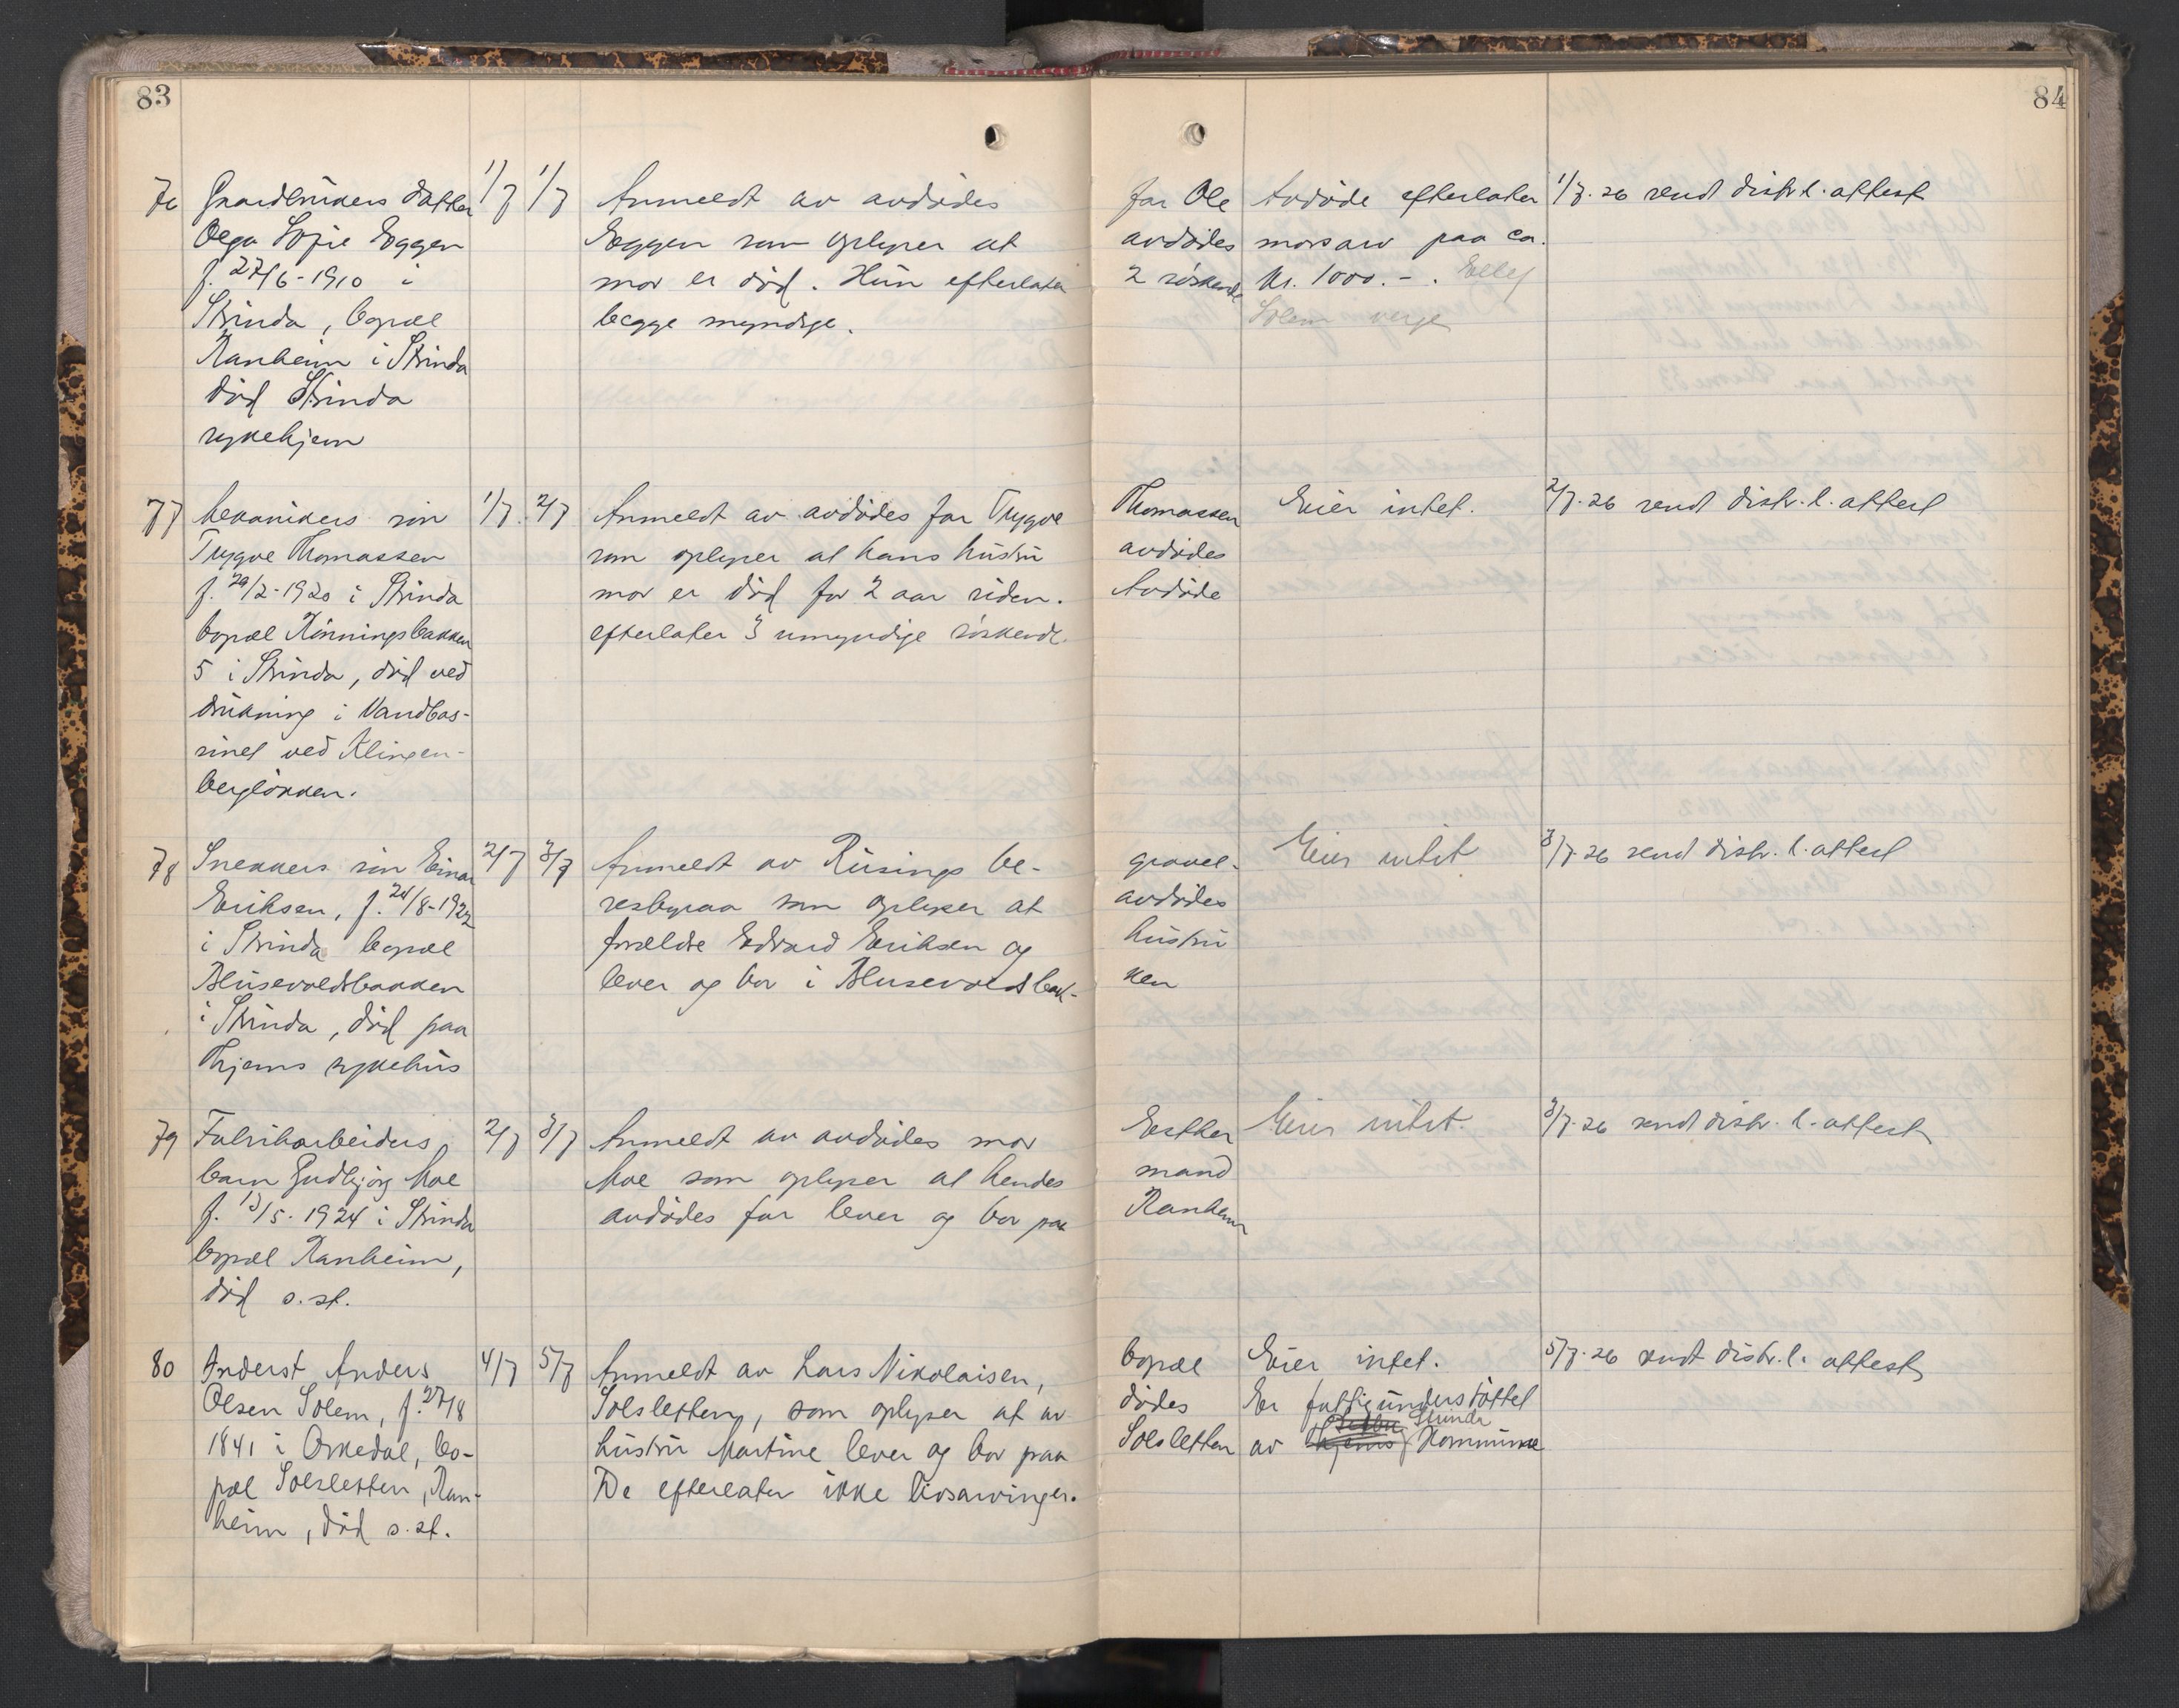 83
84
76 Gaardbrukers datter 1/7 1/7 Anmeldt av avdødes far Ole Avdøde efterlater 1/7-26 sendt distr. l. attest
Olga Sofie Eggen Eggen som oplyser at avdødes morsarv paa ca.
f. 27/6-1910 i mor er død. Hun efterlater 2 søskende kr. 1000.-. Ellef
Strinda, bopæl begge myndige. Solem verge
Ranheim i Strinda
død Strinda
sykehjem
77 Mekanikers søn 1/7. 2/7 Anmeldt av avdødes far Trygve Thomassen Eier intet. 2/7-26 sendt distr. l. attest
Trygve Thomassen som oplyser at hans hustru avdødes
f. 29/2-1920 i Strinda mor er død for 2 aar siden. Avdøde
bopæl Rønningsbakken efterlater 3 umyndige søskende.
5 i Strinda, død ved
drukning i Vandbas-
sinet ved Klingen-
bergløkken.
78 Snekkers søn Einar 2/7 3/7 Anmeldt av Rusings be- gravel- Eier intet 3/7-26 sendt distr. l. attest
Eriksen, f. 24/8-1922 resbyraa som oplyser at avdødes
i Strinda bopæl forældre Edvard Eriksen og hustru
Blusevoldsbakken lever og bor i Blusevoldsbak- ken
i Strinda, død paa
Thjems sykehus
79 Fabrikarbeiders 2/7 3/7 Anmeldt av avdødes mor Esther Eier intet. 3/7-26 sendt distr. l. attest
barn Gudbjørg Moe Moe som oplyser at hendes mand
f. 13/5-1924 i Strinda avdødes far lever og bor paa Ranheim
bopæl Ranheim,
død s.st.
80 Anderst Anders 4/7 5/7 Anmeldt av Lars Nikolaisen, bopæl Eier intet. 5/7-26 sendt distr. l. attest
Olsen Solem, f. 27/8 Solsletten, som oplyser at av- dødes Er fattigunderstøttet
1841 i Orkedal, bo- hustru Martine lever og bor paa Solsletten av Thjems Strinda Kommune
pæl Solsletten, Ran- De efterlater ikke livsarvinger.
heim, død s.st.